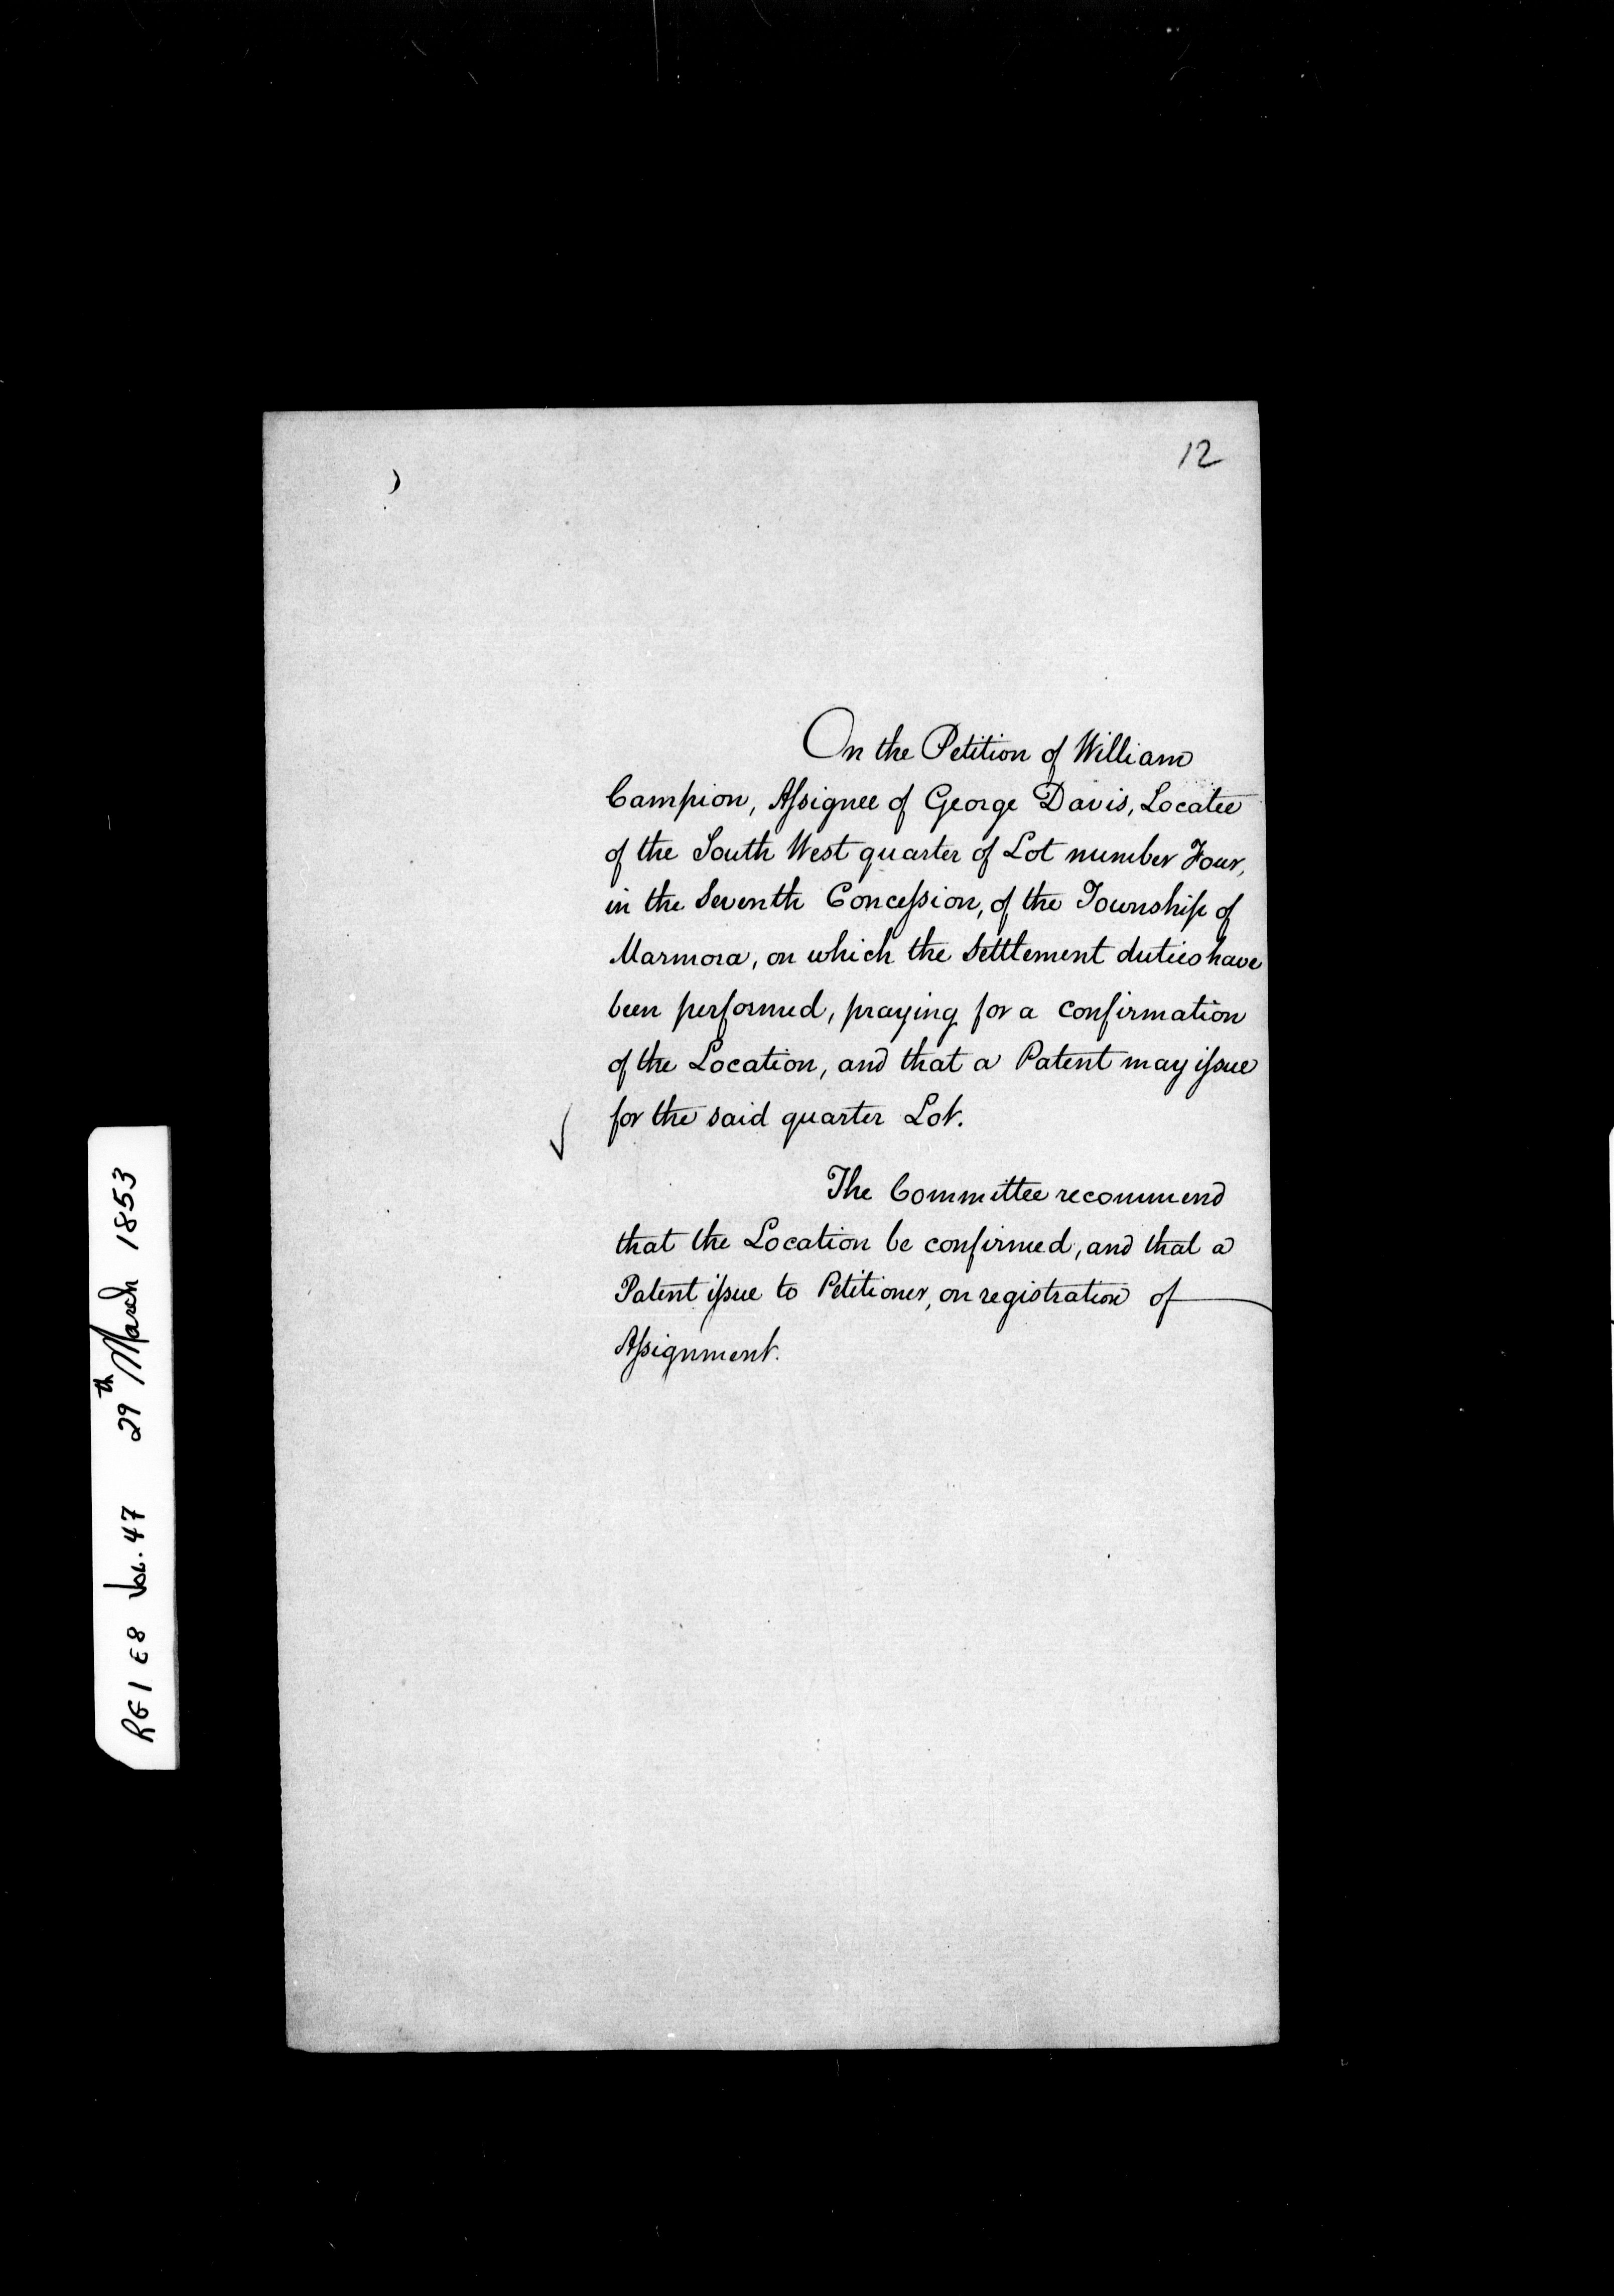 12
On the Petition of William
Campion, Assignee of George Davis, Locatee
of the South West quarter of Lot number Four,
in the Seventh Concession, of the Township of
Marmora, on which the Settlement duties have
been performed, praying for a confirmation
of the Location, and that a Patent may issue
for the said quarter Lot.
The Committee recommend
that the Location be confirmed, and that a
Patent issue to Petitioner, on registration of
Assignment.
RG 1 E8 Vol. 47 29th March 1853